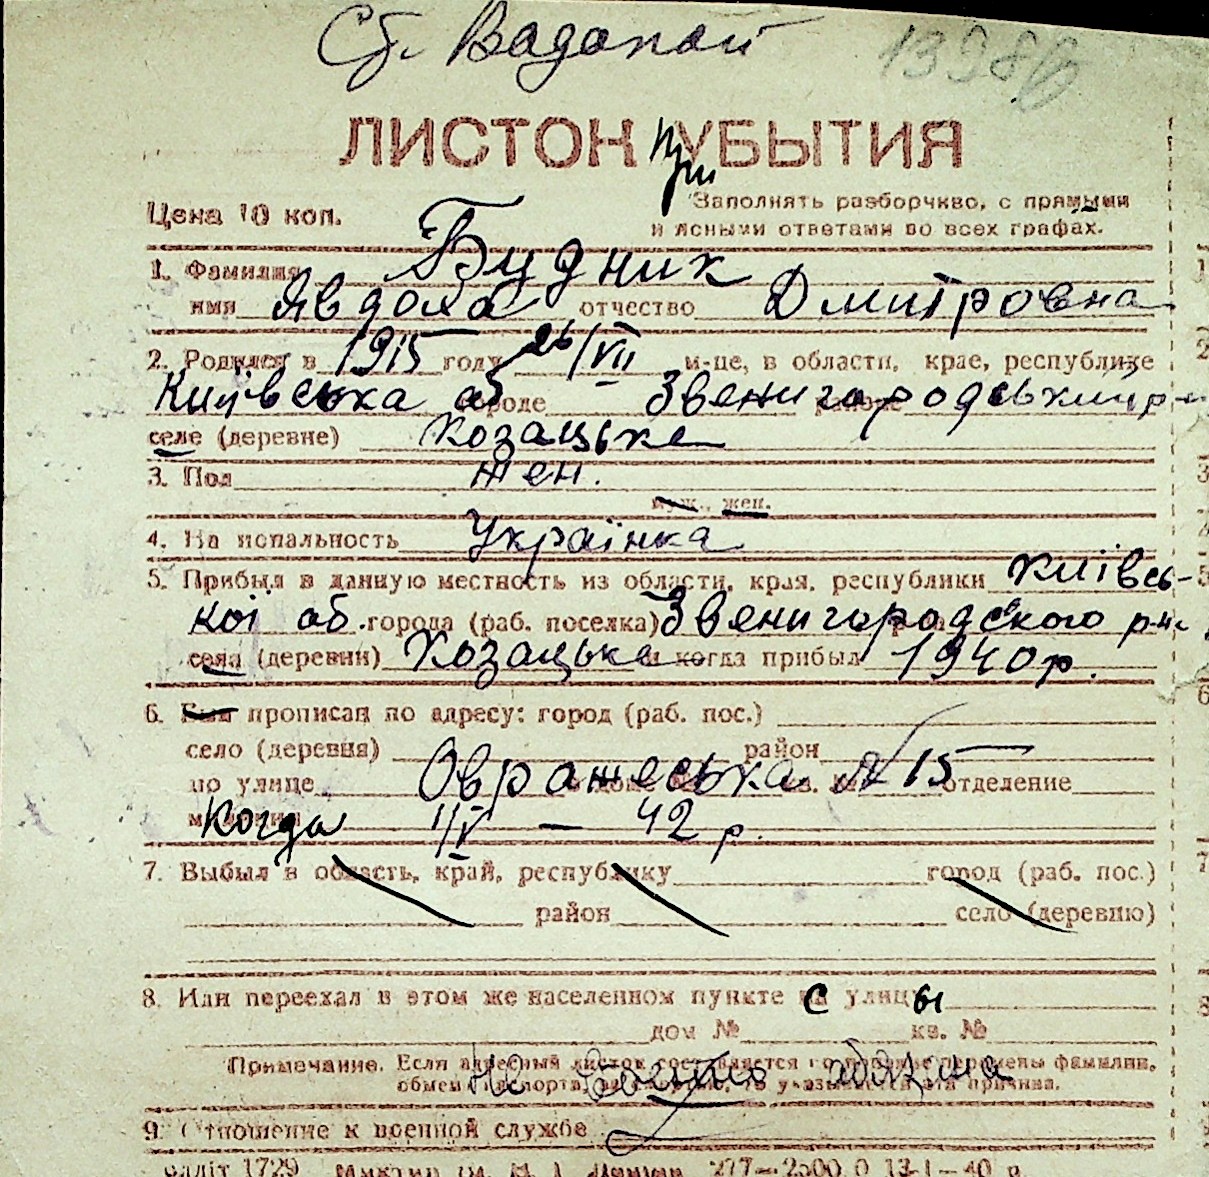 Ст. Водопой
1398
ЛИСТОК при УБЫТИЯ
Цена 10 коп.
Заполнять разборчиво, с прямыми
и ясными ответами во всех графах.
1. Фамилия Будник
имя Явдоха отчество Дмитровна
2. Родился в 1915 году 26/VII м-це, в области, крае, республике
Київська об городе Звенигородський р-н
селе (деревне) Козацьке
3. Пол жен.
муж., жен.
4. Национальность Українка
5. Прибыл в данную местность из области, края, республики Київсь-
кої об. города (раб. поселка) Звенигородского р-н
села (деревни) Козацьке и когда прибыл 1940 р.
6. Был прописан по адресу: город (раб. пос.)
село (деревня) район
по улице Овражеська № 15 отделение
Когда 1/V – 42 р.
7. Выбыл в область, край, республику город (раб. пос.)
район село (деревню)
8. Или переехал в этом же населенном пункте с улицы
дом № кв. №
Примечание. Если адресный листок составляется перемены фамилии,
обмен паспорта, указывается причина.
9. Отношение к военной службе
1729 277—2500.0 13-I—40 р.